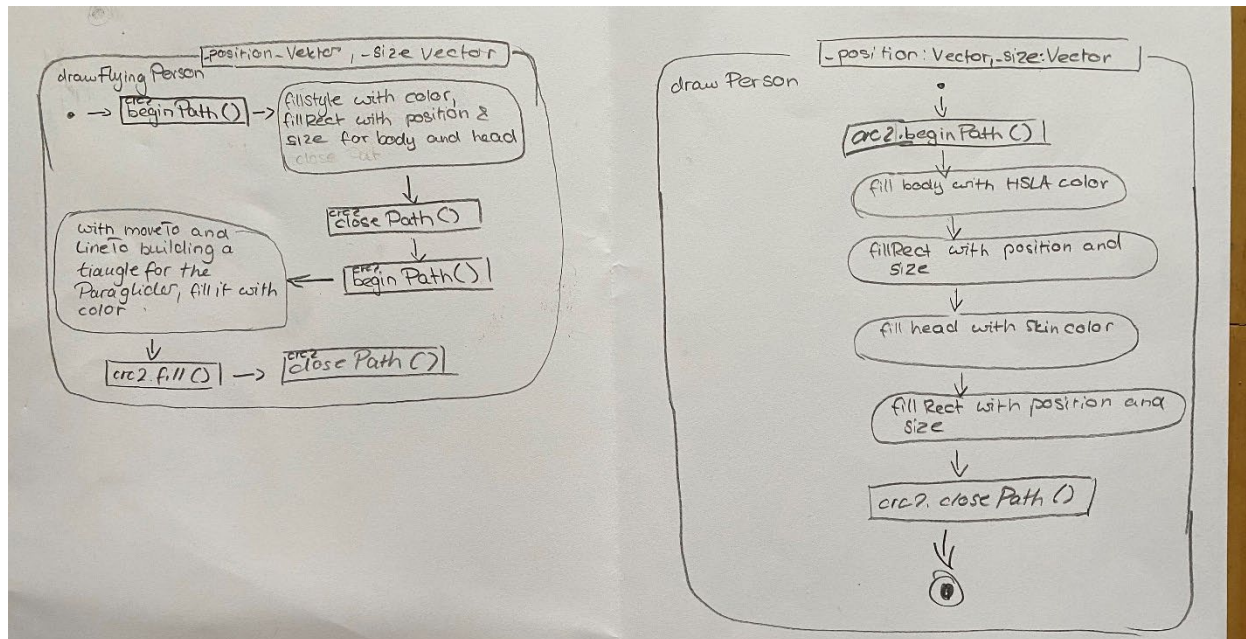 _position_Vektor, _size Vector
drawFlying Person
crc2
beginPath()
fillstyle with color,
fillRect with position &
size for body and head
close Pat
crc2
close Path()
crc2.
begin Path()
with moveTo and
LineTo building a
tiaugle for the
Paraglider, fill it with
color.
crc2.fill()
crc2
close Path()
_position: Vector, _size: Vector
draw Person
crc2.beginPath()
fill body with HSLA color
fillRect with position and
size
fill head with Skin color
fill Rect with position and
size
crc2. close Path()